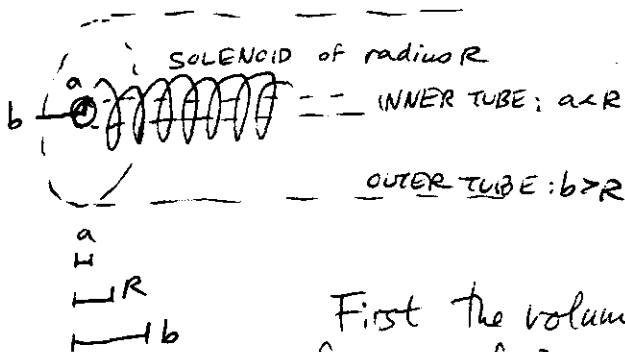 SOLENOID of radius R
a
b
INNER TUBE: a<R
OUTER TUBE: b>R
a
R
b
First the volum